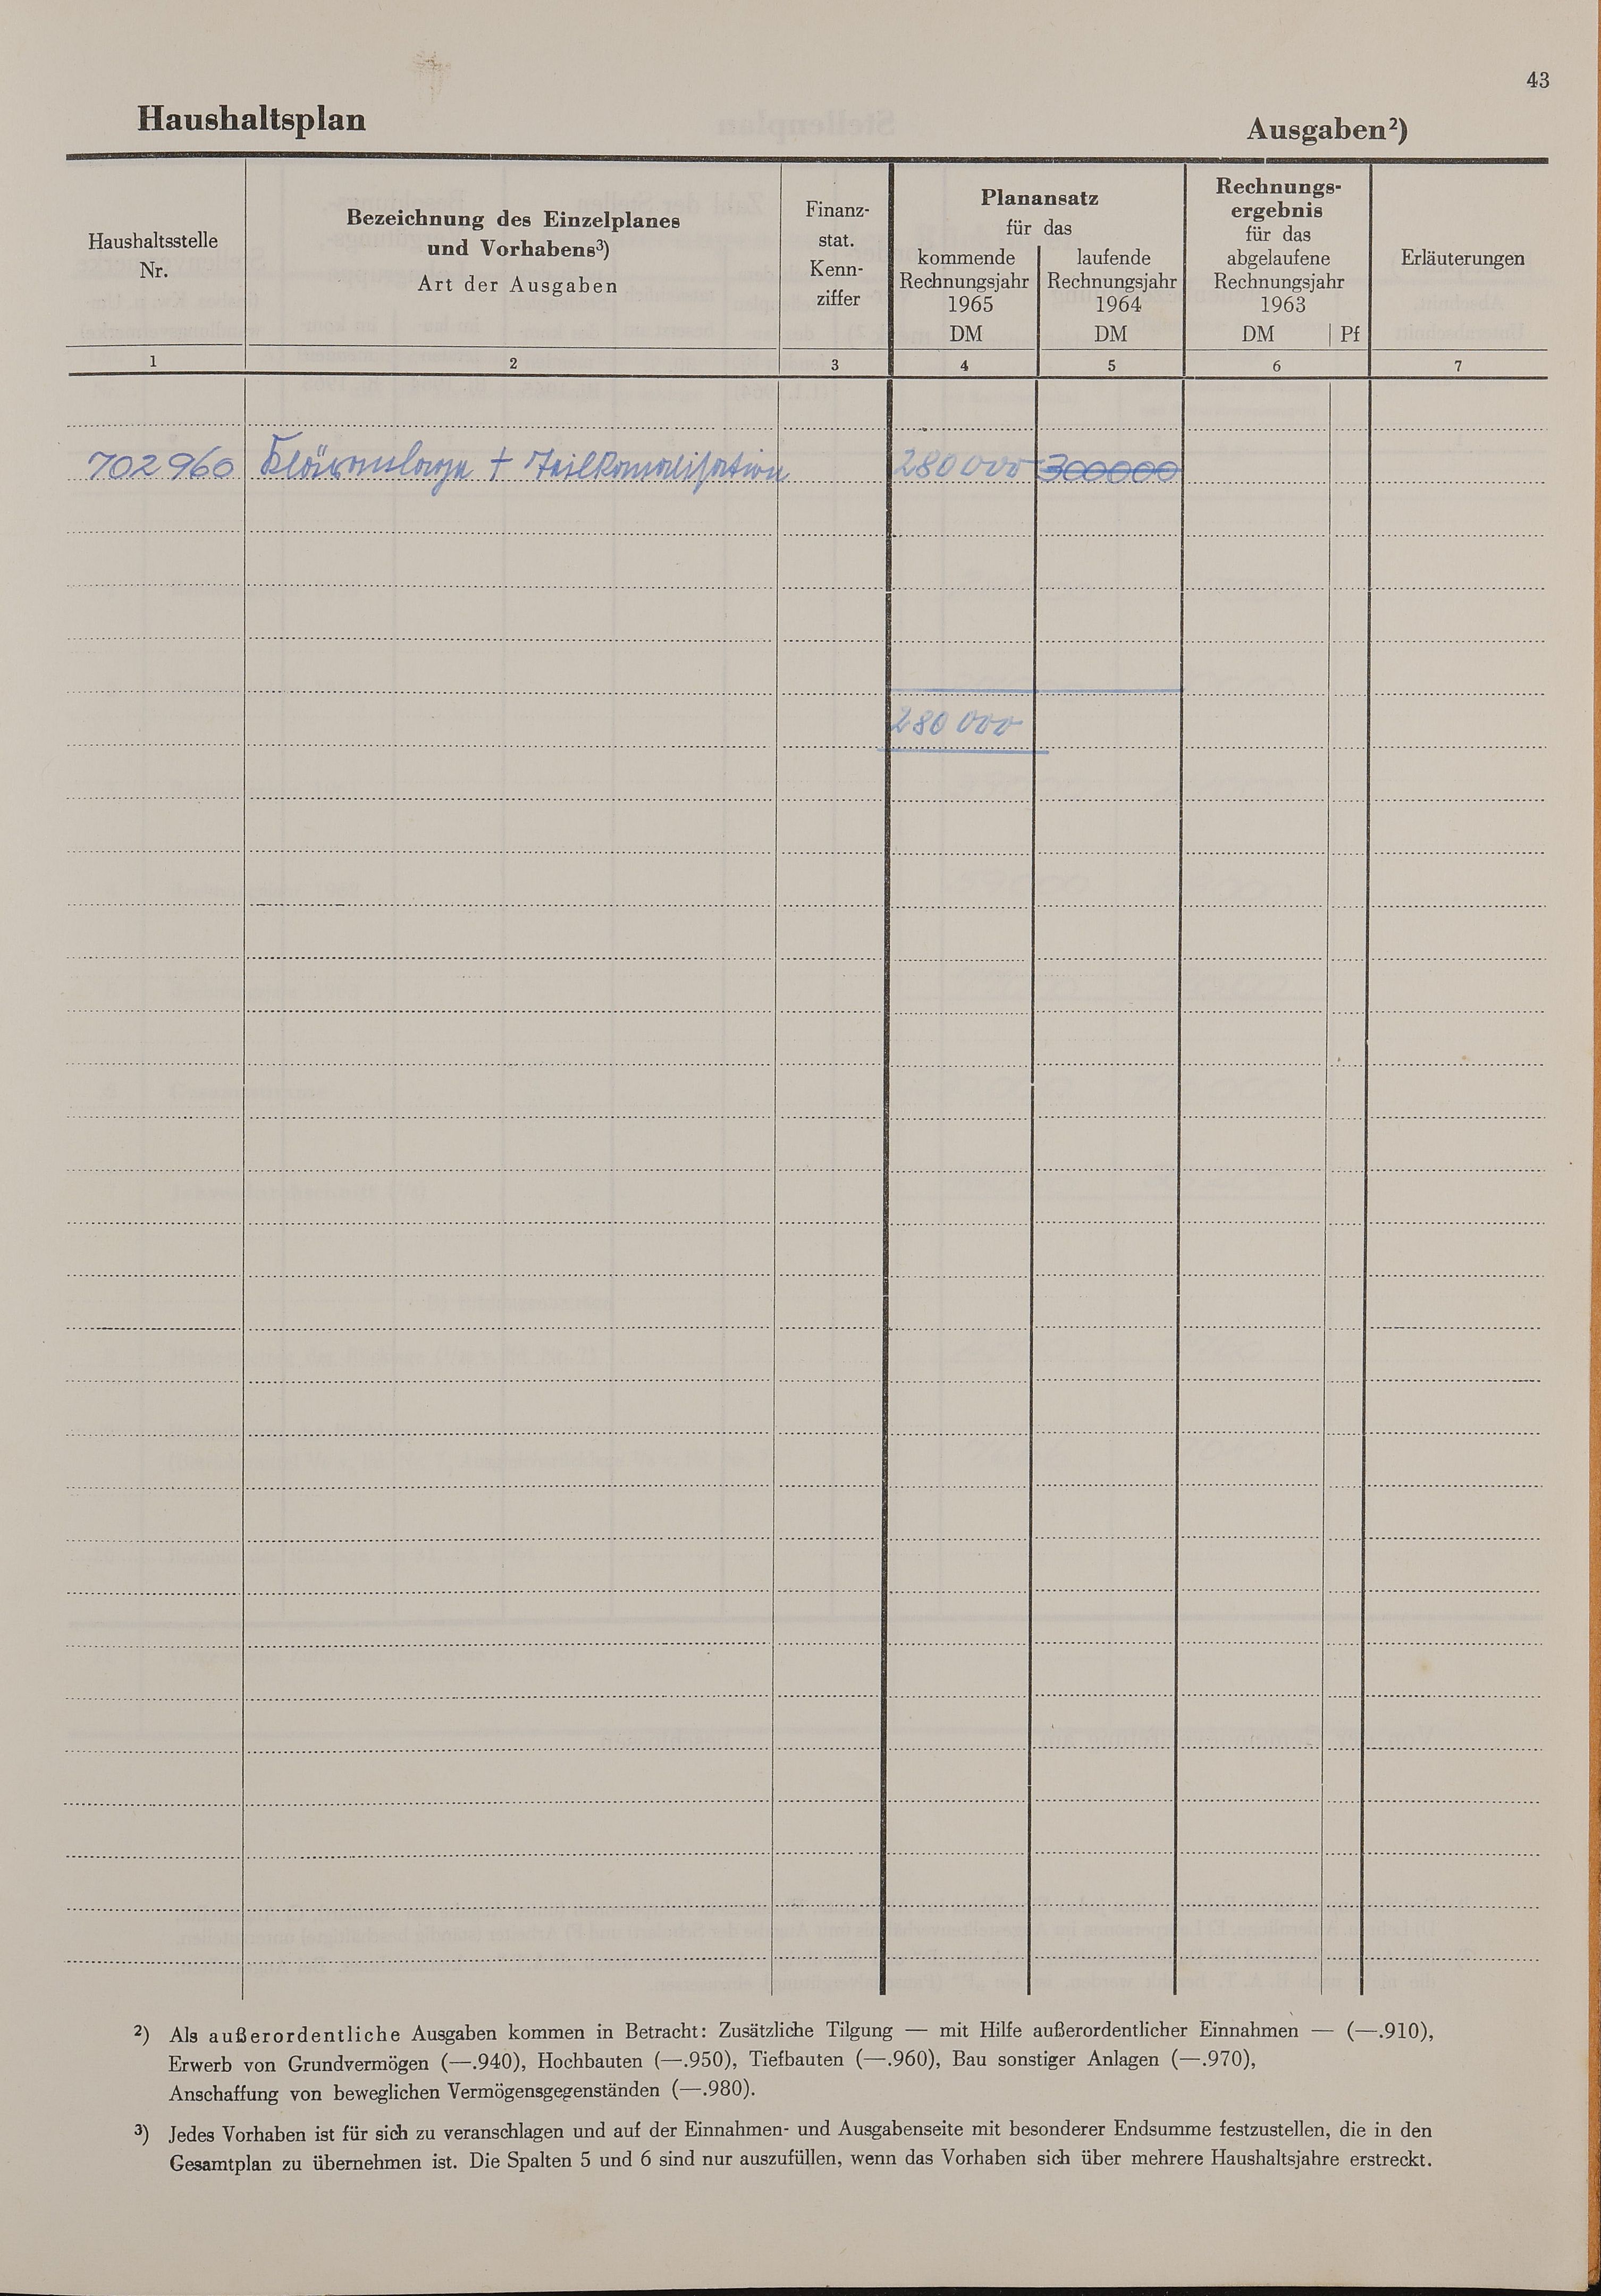 43
Haushaltsplan
Ausgaben²)
Haushaltsstelle
Nr.
Bezeichnung des Einzelplanes
und Vorhabens³)
Art der Ausgaben
Finanz-
stat.
Kenn-
ziffer
Planansatz
für das
kommende
Rechnungsjahr
1965
DM
laufende
Rechnungsjahr
1964
DM
Rechnungs-
ergebnis
für das
abgelaufene
Rechnungsjahr
1963
DM | Pf
Erläuterungen
1 2 3 4 5 6 7
702 960 Kläranlage + Teilkanalisation 280 000 300000
280 000
²) Als außerordentliche Ausgaben kommen in Betracht: Zusätzliche Tilgung — mit Hilfe außerordentlicher Einnahmen — (—.910),
Erwerb von Grundvermögen (—.940), Hochbauten (—.950), Tiefbauten (—.960), Bau sonstiger Anlagen (—.970),
Anschaffung von beweglichen Vermögensgegenständen (—.980).
³) Jedes Vorhaben ist für sich zu veranschlagen und auf der Einnahmen- und Ausgabenseite mit besonderer Endsumme festzustellen, die in den
Gesamtplan zu übernehmen ist. Die Spalten 5 und 6 sind nur auszufüllen, wenn das Vorhaben sich über mehrere Haushaltsjahre erstreckt.